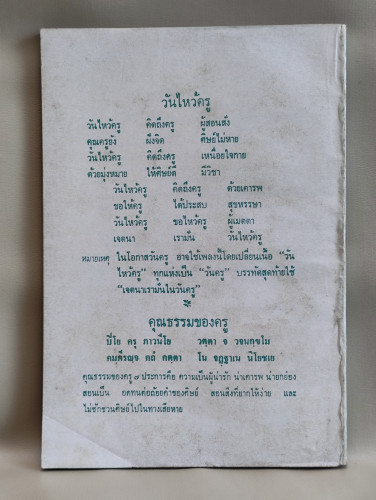 วันไหว้ครู
วันไหว้ครู คิดถึงครู ผู้สอนสั่ง
คุณครูยัง ฝังจิต ศิษย์ไม่หาย
วันไหว้ครู คิดถึงครู เหนื่อยใจกาย
ด้วยมุ่งหมาย ให้ศิษย์ดี มีวิชา
วันไหว้ครู คิดถึงครู ด้วยเคารพ
ขอให้ครู ได้ประสบ สุขหรรษา
วันไหว้ครู ขอไหว้ครู ผู้เมตตา
เจตนา เรามั่น วันไหว้ครู
หมายเหตุ ในโอกาสวันครู อาจใช้เพลงนี้โดยเปลี่ยนเนื้อ “วัน
ไหว้ครู” ทุกแห่งเป็น “วันครู” บรรทัดสุดท้ายใช้
“เจตนาเรามั่นในวันครู”
คุณธรรมของครู
ปิโย ครุ ภาวนีโย วตฺตา จ วจนกฺขโม
คมฺภีรญฺจ กถํ กตฺตา โน จฏฺฐาเน นิโยชเย
คุณธรรมของครู ๗ ประการคือ ความเป็นผู้น่ารัก น่าเคารพ น่ายกย่อง
สอนเป็น อดทนต่อถ้อยคำของศิษย์ สอนสิ่งที่ยากให้ง่าย และ
ไม่ชักชวนศิษย์ไปในทางเสียหาย